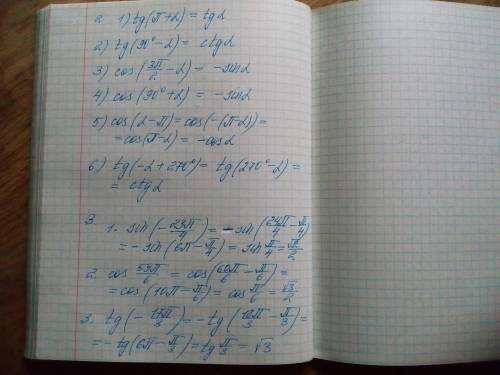 2. 1) tg(π+α) = tgα
2) tg(90°-α) = ctgα
3) cos(3π/2 - α) = -sinα
4) cos(90°+α) = -sinα
5) cos(α-π) = cos(-(π-α)) =
= cos(π-α) = -cosα
6) tg(-α+270°) = tg(270°-α) =
= ctgα
3.
1. sin(-23π/4) = -sin(24π/4 - π/4)
= -sin(6π - π/4) = sin π/4 = √2/2
2. cos 59π/6 = cos(60π/6 - π/6) =
= cos(10π - π/6) = cos π/6 = √3/2
3. tg(-17π/3) = -tg(18π/3 - π/3) =
= -tg(6π - π/3) = tg π/3 = √3